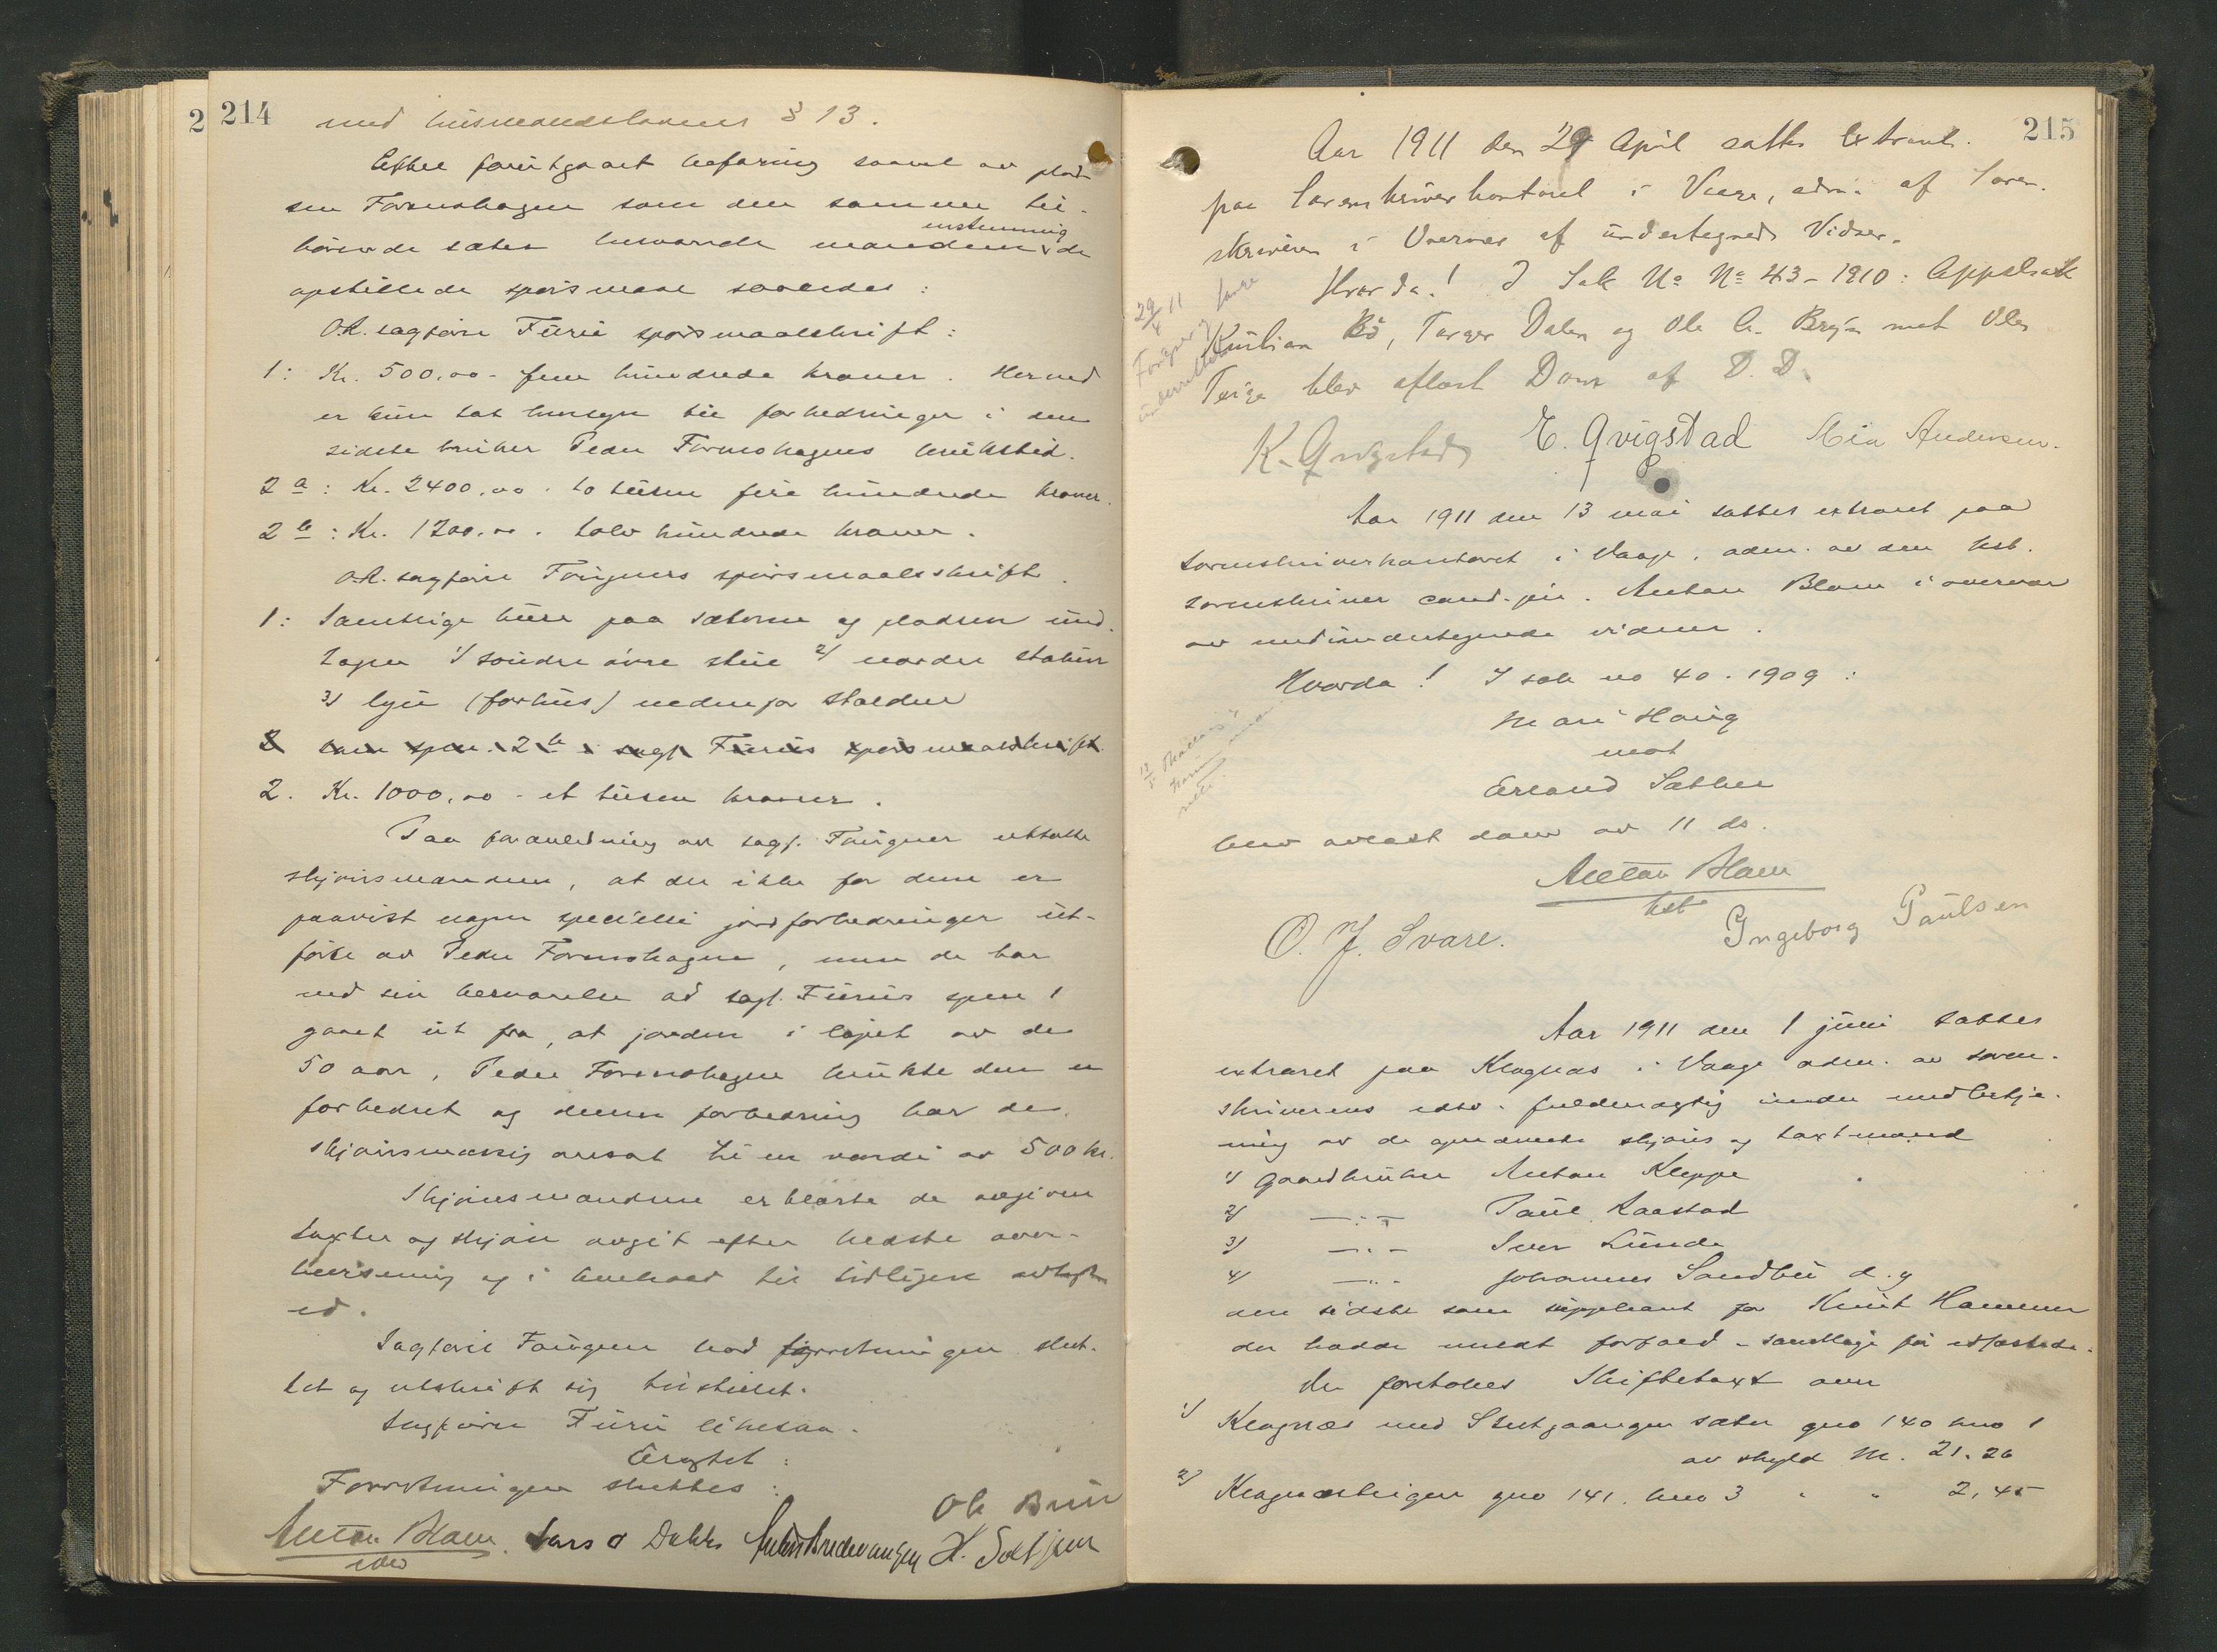 214
med husmandslovens § 13.
Efter forutgaaet befaring saavel av plad-
sen Formohagen som den samme til-
hörende sæter besvarede mændene enstemmig de
opstillede spörsmaal saaledes:
O.R. sagförer Furu spörsmaalskrift:
1: Kr. 500,00 - fem hundrede kroner. Herved
er kun tat hensyn til forbedringer i den
sidste bruker Peder Formohagens brukstid.
2 a: Kr. 2400,00. to tusen fire hundrede kroner.
2 b: Kr. 1200,00. tolv hundrede kroner.
O.R. sagförer Fougners spörsmaalsskrift.
1: Samtlige huse paa sæteren og pladsen und-
tagen 1/ söndre övre stue 2/ nordre stabur
3/ lyu (forhus) nedenfor stalden
2 som spm. 2 b i sagf. Furus spörsmaalskrift.
2. Kr. 1000,00 - et tusen kroner.
Paa foranledning av sagf. Fougner uttalte
skjönsmændene, at der ikke for dem er
paavist nogen specielle jordforbedringer ut-
förte av Peder Formohagen, men de har
ved sin besvarelse av sagf. Furus spm 1
gaaet ut fra, at jorden i löpet av de
50 aar, Peder Formohagen brukte den er
forbedret og denne forbedring har de
skjönsmæssig ansat til en værdi av 500 kr.
Skjönsmændene erklærte de avgivne
taxter og skjön avgit efter bedste over-
bevisning og i henhold til tidligere avlagt
ed.
Sagförer Fougner bad forretningen slut-
tet og utskrift sig tilstillet.
Sagförer Furu likesaa.
Eragtet:
Forretningen sluttes:
Ole Bruu
Anton Blom Lars O Dahle H. Solhjem
edsv
215
Aar 1911 den 29 April sattes Extraret.
paa Sorenskriverkontoret i Vaage, adm. af Soren-
skriveren i Overvær af undertegnede Vidner.
Hvorda! I Sak No No 43-1910: Appstrat
Bö, Torger Dalen og Ole A. Bryn mot Ole
Teige blev aflæst Dom af D. D.
29/4 11
Fougner og Furu
underrettet
K. Qvigstad E. Qvigstad Mia Andersen.
Aar 1911 den 13 mai sattes extraret paa
sorenskriverkontoret i Vaage, adm. av den kst.
sorenskriver cand. jur. Anton Blom i overvær
av medundertegnede vidner.
Hvorda! I sak no 40. 1909:
Mari Haug
mot
Erland Sæther
blev avlæst dom av 11 ds.
Anton Blom
kst
O. J. Svare. Ingeborg Paulsen
Aar 1911 den 1 juni sattes
extraret paa Klognæs i Vaage adm. av soren-
skriverens edsv. fuldmægtig under medbetje-
ning av de opnævnte skjöns og taxtmænd
1/ Gaardbruker Anton Kleppe
2/ —..— Paul Raastad
3/ —..— Iver Lunde
4/ —..— Johannes Sandbu d. y
den sidste som suppleant for Knut Hammer
der hadde meldt forfald - samtlige för edfæstede.
Der foretokes Skiftetaxt over
1/ Klognæs med Slutgaangen sæter gno 140 bno 1
av skyld M. 21.26
2/ Klognæsteigen gno 141. bno 3 " " 2,45